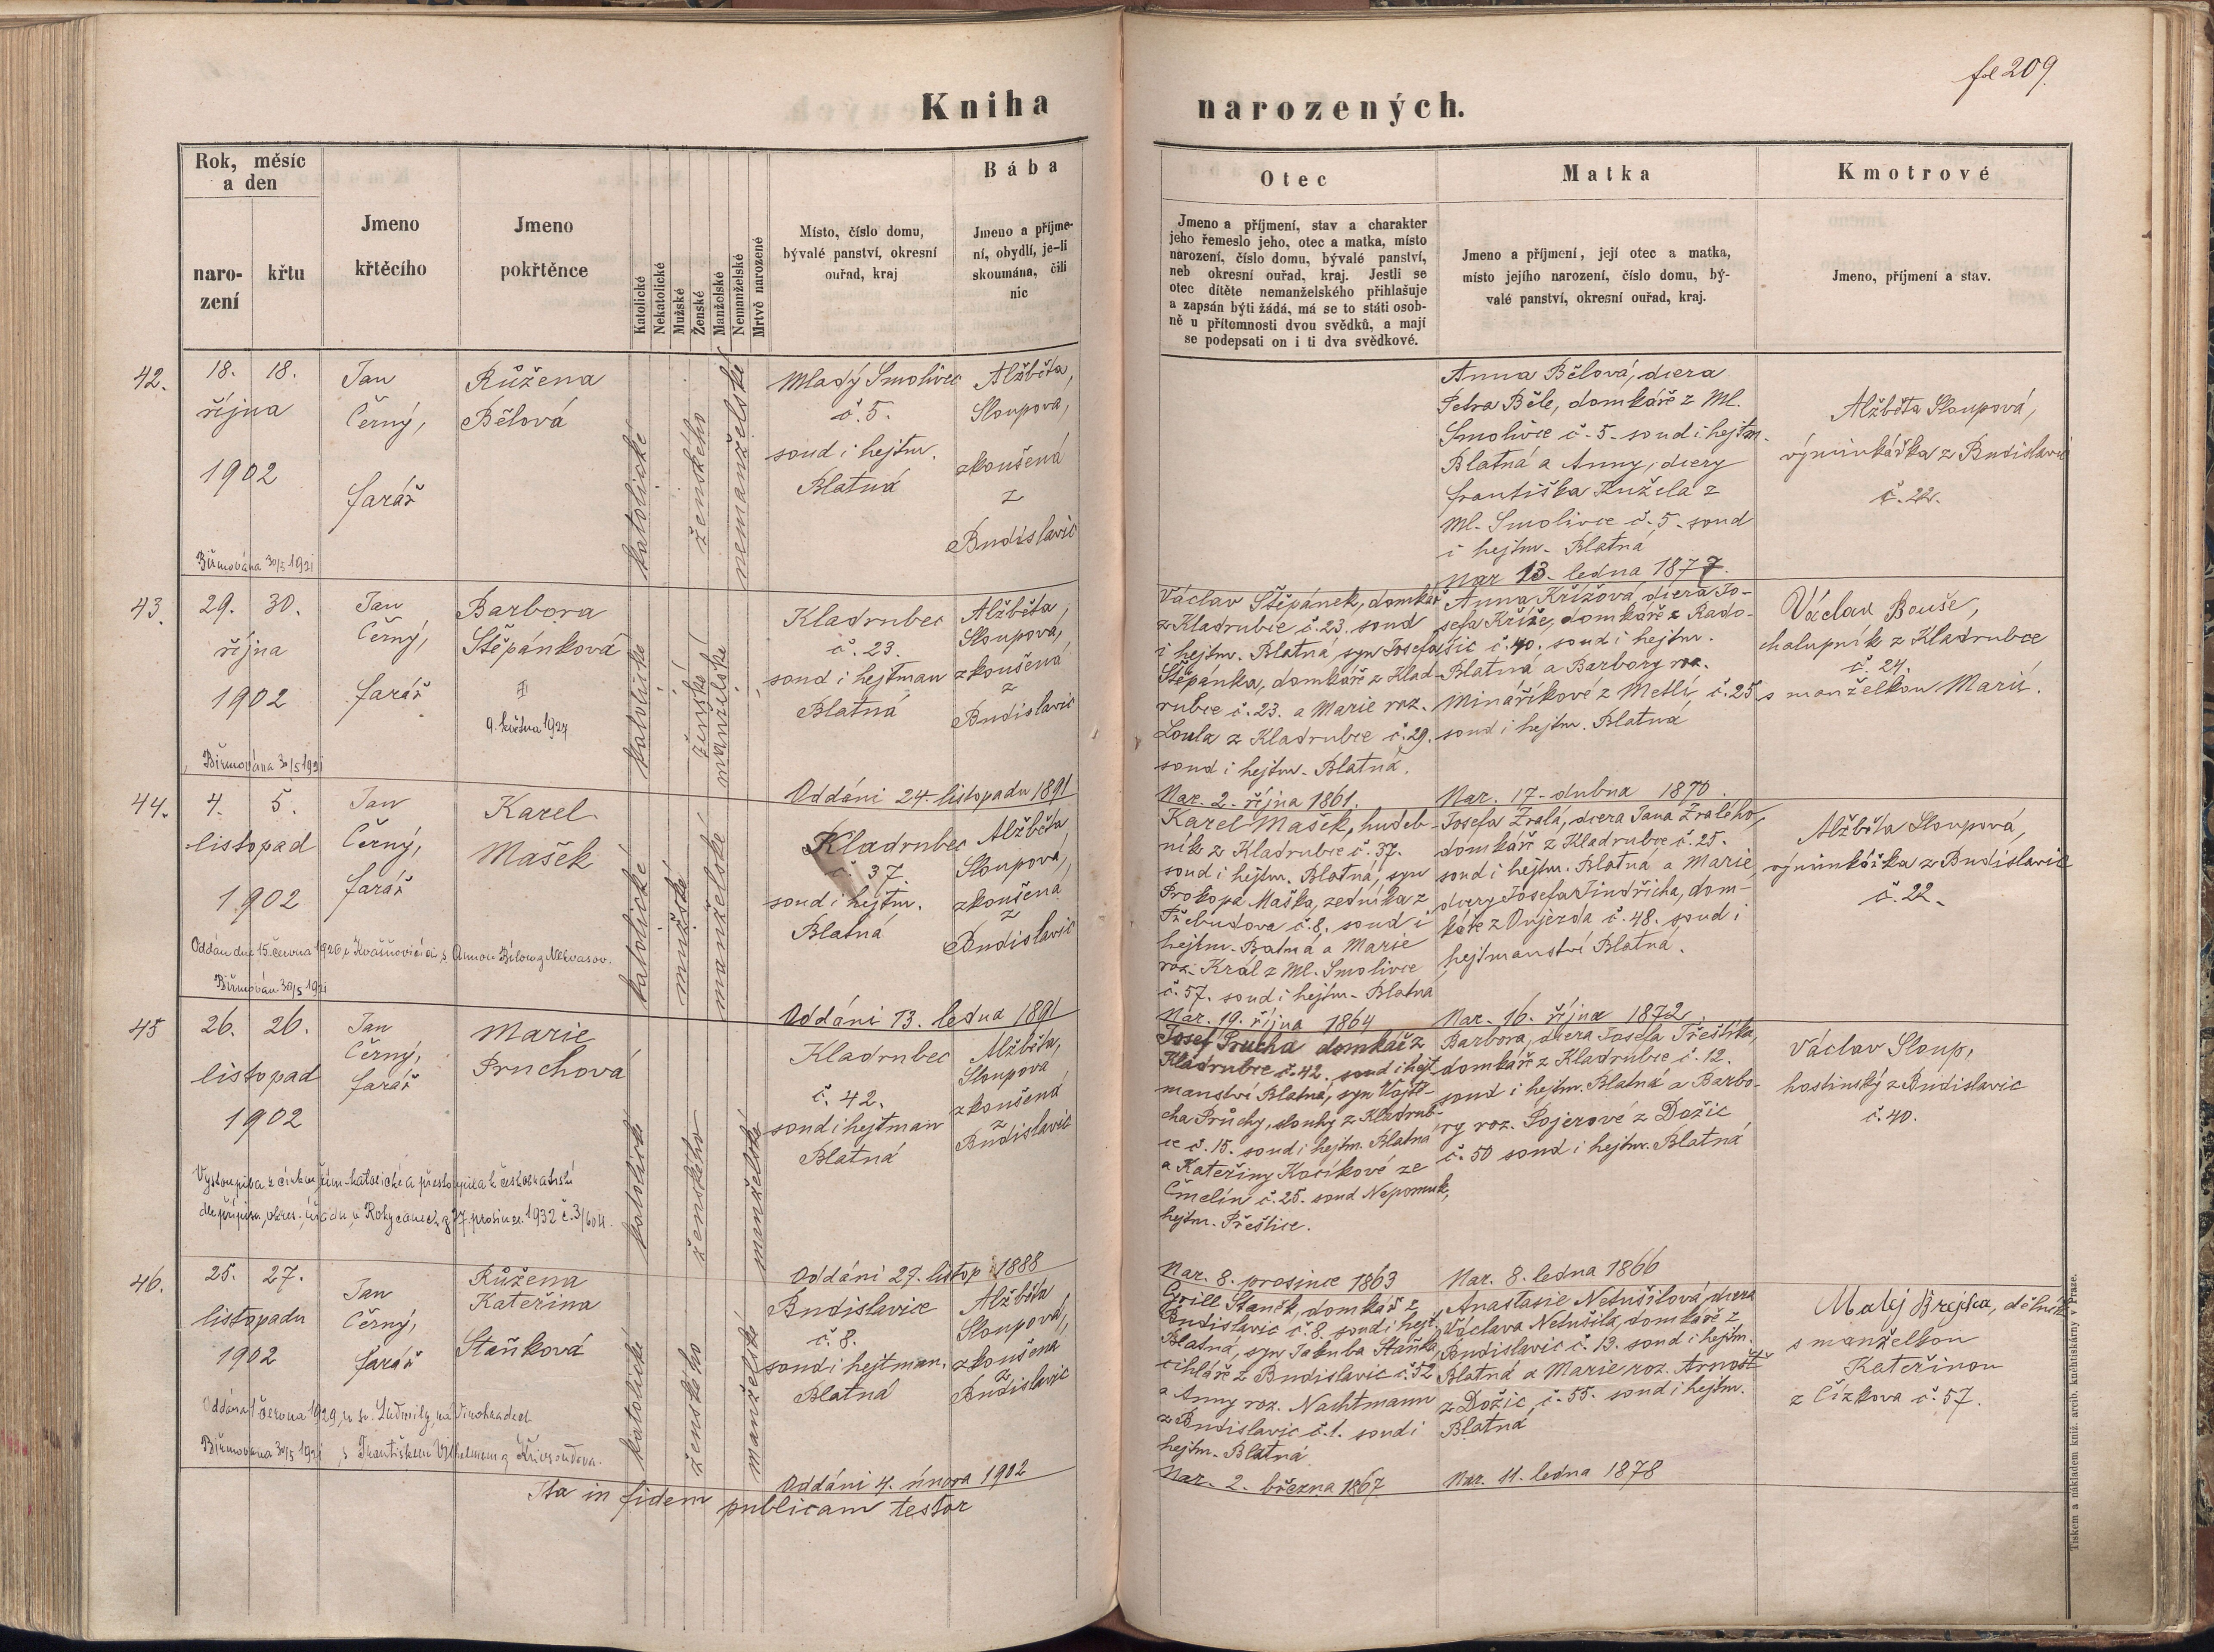 fol 209.
Kniha narozených.
Rok, měsíc
a den
naro-
zení
křtu
Jmeno
křtěcího
Jmeno
pokřtěnce
Katolické
Nekatolické
Mužské
Ženské
Manželské
Nemanželské
Mrtvě narozené
Místo, číslo domu,
bývalé panství, okresní
ouřad, kraj
Bába
Jmeno a příjme-
ní, obydlí, je-li
skoumána, čili
nic
Otec
Jmeno a příjmení, stav a charakter
jeho řemeslo jeho, otec a matka, místo
narození, číslo domu, bývalé panství,
neb okresní ouřad, kraj. Jestli se
otec dítěte nemanželského přihlašuje
a zapsán býti žádá, má se to státi osob-
ně u přítomnosti dvou svědků, a mají
se podepsati on i ti dva svědkové.
Matka
Jmeno a příjmení, její otec a matka,
místo jejího narození, číslo domu, bý-
valé panství, okresní ouřad, kraj.
Kmotrové
Jmeno, příjmení a stav.
42.
18. 18.
října
1902
Biřmována 30/5 1921
Jan
Černý,
farář
Růžena
Bělová
katolické
ženského
nemanželské
Mladý Smolivec
č. 5.
soud i hejtm.
Blatná
Alžběta,
Sloupova,
zkoušená
z
Budislavic
Anna Bělová, dcera
Petra Běle, domkáře z Ml.
Smolivce č. 5. soud i hejtm.
Blatná a Anny, dcery
Františka Kužela z
Ml. Smolivce č. 5. soud
i hejtm. Blatná
Nar 13. ledna 1877.
Alžběta Sloupová,
výminkářka z Budislavic
č. 22.
43.
29. 30.
října
1902
Biřmována 30/5 1921
Jan
Černý,
farář
Barbora
Štěpánková
9. května 1927
katolické
ženské
manželské
Kladrubec
č. 23.
soud i hejtman
Blatná
Oddáni 24. listopadu 1891
Alžběta,
Sloupová,
zkoušená
z
Budislavic
Václav Štěpánek, domkář
z Kladrubce č. 23. soud
i hejtm. Blatná syn Josefa
Štěpánka, domkáře z Klad-
rubce č. 23. a Marie roz.
Loula z Kladrubce č. 29.
soud i hejtm. Blatná.
Nar. 2. října 1861.
Anna Křížová, dcera Jo-
sefa Kříže, domkáře z Rado-
šic č. 40. soud i hejtm.
Blatná a Barbory roz.
Mináříkové z Metlí č. 25
soud i hejtm. Blatná
Nar. 17. dubna 1870.
Václav Bouše,
chalupník z Kladrubce
č. 24.
s manželkou Marií.
44.
4. 5.
listopad
1902
Oddán dne 15. června 1926 v Kvášňovicích s Annou Bílou z Nekvasov.
Biřmován 30/5 1921
Jan
Černý,
farář
Karel
Mašek
katolické
mužské
manželské
Kladrubec
č. 37.
soud i hejtm.
Blatná
Oddáni 13. ledna 1891
Alžběta
Sloupová,
zkoušená
z
Budislavic
Karel Mašek, hudeb-
ník z Kladrubce č. 37.
soud i hejtm. Blatná, syn
Prokopa Maška, zedníka z
Třebudova č. 8. soud i
hejtm. Blatná a Marie
roz. Král z Ml. Smolivce
č. 57. soud i hejtm. Blatna
Nar. 19. října 1864
Josefa Zralá, dcera Jana Zralého,
domkáře z Kladrubce č. 25.
soud i hejtm. Blatná a Marie,
dcery Josefa Jindřicha, dom-
káře z Oujezda č. 48. soud i
hejtmanství Blatná.
Nar. 16. října 1872.
Alžběta Sloupová,
výminkářka z Budislavic
č. 22.
45
26. 26.
listopad
1902
Vystoupila z církve řím-katolické a přestoupila k českobratrské
dle přípisu okres. úřadu v Rokycanech z 27. prosince 1932 č. 3/604.
Jan
Černý,
farář
Marie
Pruchová
katolické
ženského
manželské
Kladrubec
č. 42.
soud i hejtman
Blatná
Oddáni 27. listop. 1888
Alžběta,
Sloupova
zkoušená
z
Budislavic
Josef Prucha domkář z
Kladrubce č. 42. soud i hejt-
manství Blatná, syn Vojtě-
cha Průchy, slouhy z Kladrub-
ce č. 15. soud i hejtm. Blatná
a Kateřiny Kocíkové ze
Čmelín č. 25. soud Nepomuk,
hejtm. Přeštice.
Nar. 8. prosince 1863
Barbora, dcera Josefa Třeštíka,
domkáře z Kladrubce č. 12.
soud i hejtm. Blatná a Barbo-
ry roz. Pojerové z Dožic
č. 50 soud i hejtm. Blatná
Nar. 8. ledna 1866
Václav Sloup,
hostinský z Budislavic
č. 40.
46.
25. 27.
listopadu
1902
Oddána 1 června 1929, u sv. Ludmily, na Vinohradech
Biřmována 30/5 1921 s Františkem Vilhelmem z Křivsoudova.
Jan
Černý,
farář
Růžena
Kateřina
Staňková
katolické
ženského
manželské
Budislavice
č. 8.
soud i hejtman.
Blatná
Oddáni 4. února 1902
Alžběta
Sloupová,
zkoušena
z
Budislavic
Cyrill Staněk, domkář z
Budislavic č. 8. soud i hejt.
Blatná, syn Jakuba Staňka,
cihláře z Budislavic č. 52
a Anny roz. Nachtmann
z Budislavic č. 1. soud i
hejtm. Blatná
Nar. 2. března 1867
Anastasie Netušilová, dcera
Václava Netušila, domkáře z
Budislavic č. 13. soud i hejtm.
Blatná a Marie roz. Arnošt
z Dožic, č. 55. soud i hejtm.
Blatná
Nar. 11. ledna 1878
Matěj Brejcha, dělník
s manželkou
Kateřinou
z Čížkova č. 57.
Ita in fidem publicam testor
Tiskem a nákladem kníž. arcib. knihtiskárny v Praze.